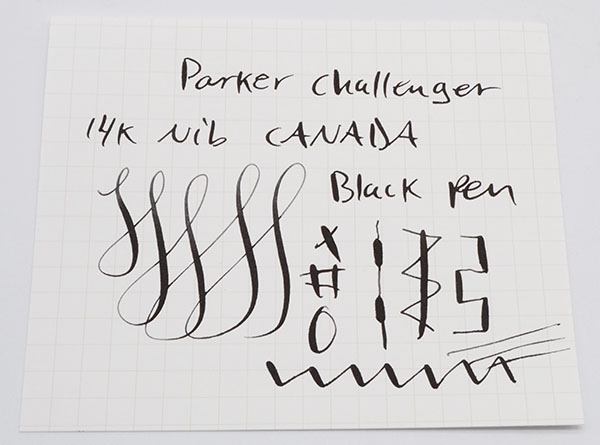 Parker Challenger
14K Nib CANADA
Black Pen